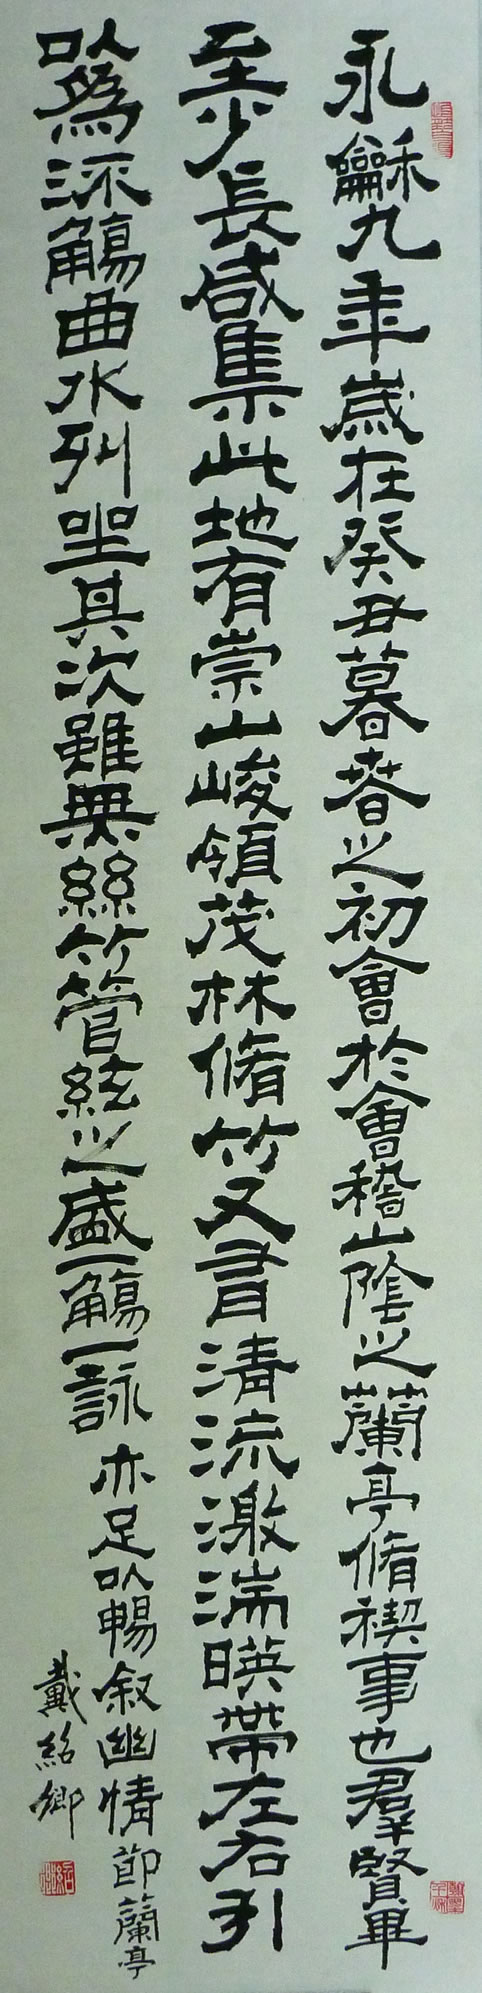 永龢九年歲在癸丑暮春之初會於會稽山陰之蘭亭脩禊事也羣賢畢
至少長咸集此地有崇山峻領茂林脩竹又有清流激湍暎帶左右引
以為流觴曲水列坐其次雖無絲竹管絃之盛一觴一詠
亦足以暢叙幽情節蘭亭
戴紹卿